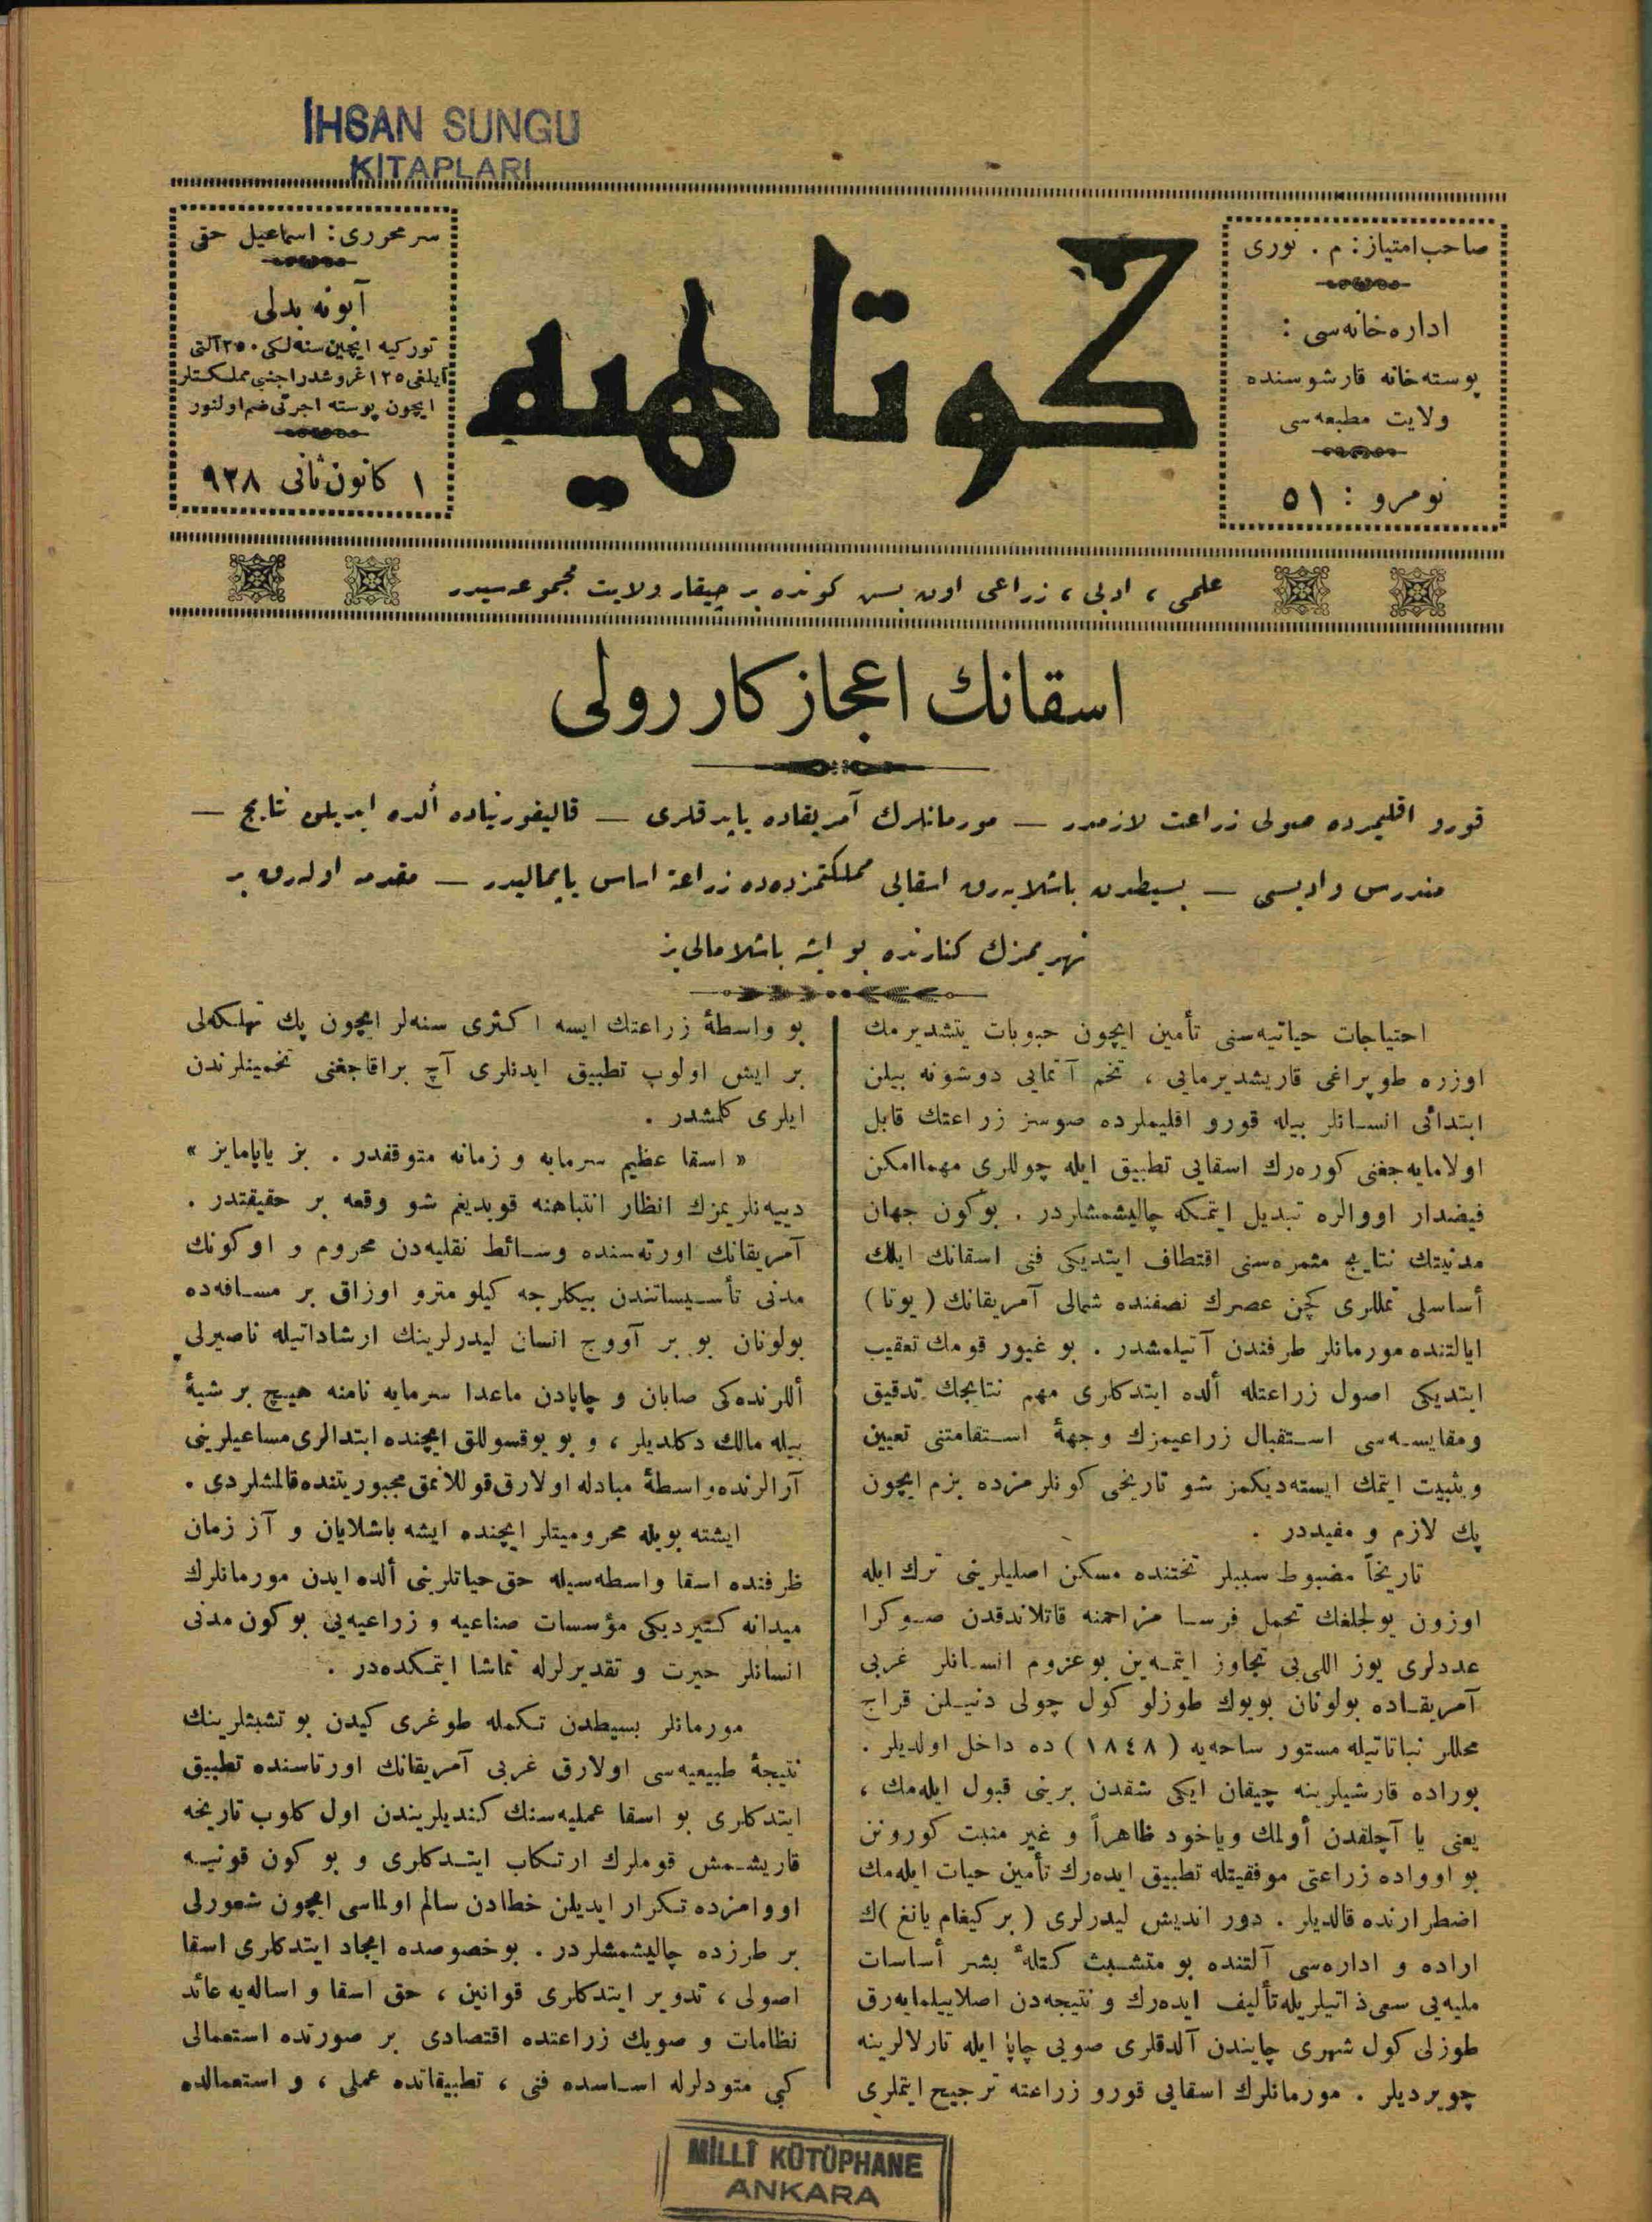 İHSAN SUNGU
KİTAPLARI
صاحب امتیاز : م . نوری
اداره‌خانه‌سی :
پوسته‌خانه قارشوسنده
ولایت مطبعه‌سی
نومرو : ٥١
کوتاهیه
سر محرری : اسماعیل حقی
آبونه بدلی
تورکیه ایچین سنه‌لکی ٢٥٠ آلتی
آیلغی ١٢٥ غروشدر اجنبی مملکتلر
ایچون پوسته اجرتی ضم اولنور
١ کانون ثانی ٩٢٨
علمی ، ادبی ، زراعی اون بش کونده بر چیقار ولایت مجموعه‌سیدر
اسقانك اعجازکار رولی
قورو اقلیمرده صولی زراعت لازمدر — مورمانلرك آمریقاده یاپدقلری — قالیفورنیاده ألده ایدیلن نتایج —
مندرس وادیسی — بسیطدن باشلایه‌رق اسقایی مملکتمزده‌ده زراعته اساس یاپمالیدر — مقدمه اوله‌رق بر
نهریمزك کنارنده بو ایشه باشلامالی‌یز
احتیاجات حیاتیه‌سنی تأمین ایچون حبوبات یتشدیرمك
اوزره طوپراغی قاریشدیرمایی ، تخم آتمایی دوشونه بیلن
ابتدائی انسانلر بیله قورو اقلیملرده صوسز زراعتك قابل
اولامایه‌جغنی کوره‌رك اسقایی تطبیق ایله چوللری مهماامکن
فیضدار اووالره تبدیل ایتمکه چالیشمشلردر . بوکون جهان
مدنیتك نتایج مثمره‌سنی اقتطاف ایتدیکی فنی اسقانك ایلك
أساسلی تمللری کچن عصرك نصفنده شمالی آمریقانك ( یوتا )
ایالتنده مورمانلر طرفندن آتیلمشدر . بو غیور قومك تعقیب
ایتدیکی اصول زراعتله ألده ایتدکاری مهم نتایجك تدقیق
ومقایسه‌سی استقبال زراعیمزك وجههٔ استقامتنی تعیین
وتثبیت ایتمك ایسته‌دیکمز شو تاریخی کونلرمزده بزم ایچون
پك لازم و مفیددر .
تاریخاً مضبوط سببلر تحتنده مسکن اصلیلرینی ترك ایله
اوزون یولجلغك تحمل فرسا مزاحمنه قاتلاندقدن صوکرا
عددلری یوز اللی‌یی تجاوز ایتمه‌ین بوعزوم انسانلر غربی
آمریقاده بولونان بویوك طوزلو کول چولی دنیلن قراج
محللر نباتاتیله مستور ساحه‌یه ( ١٨٤٨ ) ده داخل اولدیلر .
بوراده قارشیلرینه چیقان ایکی شقدن برینی قبول ایله‌مك ،
یعنی یا آچلقدن أولمك ویاخود ظاهراً و غیر منبت کورونن
بو اوواده زراعتی موفقیتله تطبیق ایده‌رك تأمین حیات ایله‌مك
اضطرارنده قالدیلر . دور اندیش لیدرلری ( برکیغام یانغ )ك
اراده و اداره‌سی آلتنده بو متشبث کتلهٔ بشر أساسات
ملیه‌یی سعی ذاتیلریله تألیف ایده‌رك و نتیجه‌دن اصلا ییلمایه‌رق
طوزلی کول شهری چایندن آلدقلری صویی چاپا ایله تارلالرینه
چویردیلر . مورمانلرك اسقایی قورو زراعته ترجیح ایتملری
بو واسطهٔ زراعتك ایسه اکثری سنه‌لر ایچون پك تهلکه‌لی
بر ایش اولوپ تطبیق ایدنلری آچ براقاجغنی تخمینلرندن
ایلری کلمشدر .
« اسقا عظیم سرمایه و زمانه متوقفدر . بز یاپامایز »
دییه‌نلریمزك انظار انتباهنه قویدیغم شو وقعه بر حقیقتدر .
آمریقانك اورته‌سنده وسائط نقلیه‌دن محروم و اوکونك
مدنی تأسیساتندن بیکلرجه کیلو مترو اوزاق بر مسافه‌ده
بولونان بو بر آووج انسان لیدرلرینك ارشاداتیله ناصیرلی
أللرنده‌کی صابان و چاپادن ماعدا سرمایه نامنه هیچ بر شیئه
بیله مالك دکلدیلر ، و بو یوقسوللق ایچنده ابتدالری مساعیلرینی
آرالرنده واسطهٔ مبادله اولارق قوللانمق مجبوریتنده قالمشلردی .
ایشته بویله محرومیتلر ایچنده ایشه باشلایان و آز زمان
ظرفنده اسقا واسطه‌سیله حق حیاتلرینی ألده ایدن مورمانلرك
میدانه کتیردیکی مؤسسات صناعیه و زراعیه‌یی بوکون مدنی
انسانلر حیرت و تقدیرلرله تماشا ایتمکده‌در .
مورمانلر بسیطدن تکمله طوغری کیدن بو تشبثلرینك
نتیجهٔ طبیعیه‌سی اولارق غربی آمریقانك اورتاسنده تطبیق
ایتدکلری بو اسقا عملیه‌سنك کندیلریندن اول کلوب تاریخه
قاریشمش قوملرك ارتکاب ایتدکلری و بو کون قونیه
اووامزده تکرار ایدیلن خطادن سالم اولماسی ایچون شعورلی
بر طرزده چالیشمشلردر . بوخصوصده ایجاد ایتدکلری اسقا
اصولی ، تدویر ایتدکلری قوانین ، حق اسقا و اساله‌یه عائد
نظامات و صویك زراعتده اقتصادی بر صورتده استعمالی
کبی متودلرله اساسده فنی ، تطبیقاتده عملی ، و استعمالده
MİLLÎ KÜTÜPHANE
ANKARA